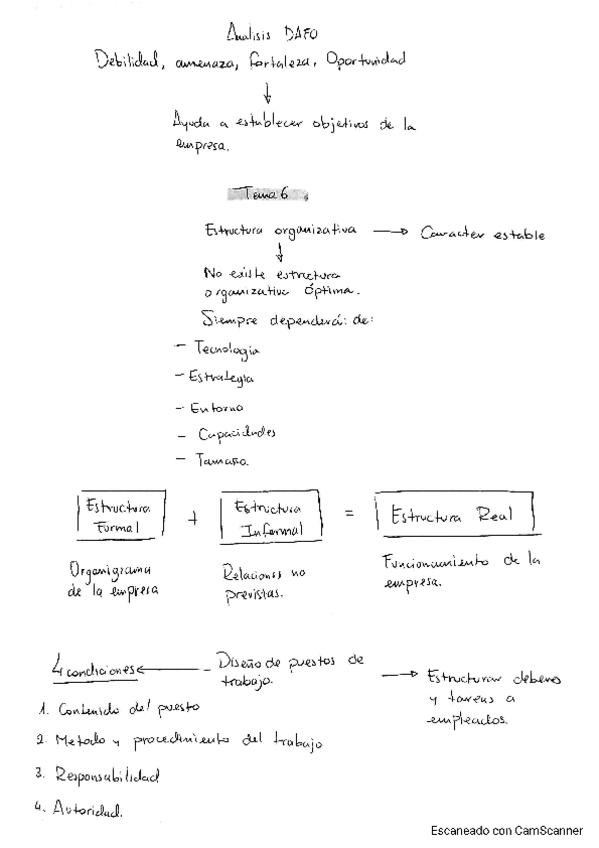 Analisis DAFO
Debilidad, amenaza, fortaleza, Oportunidad
Ayuda a establecer objetivos de la
empresa.
Tema 6
Estructura organizativa → Caracter estable
No existe estructura
organizativa óptima.
Siempre dependerá: de:
- Tecnología
- Estrategia
- Entorno
- Capacidades
- Tamaño.
Estructura
Formal
+
Estructura
Informal
=
Estructura Real
Organigrama
de la empresa
Relaciones no
previstas.
Funcionamiento de la
empresa.
4 condiciones ← - Diseño de puestos de
trabajo.
→ Estructurar deberes
y tareas a
empleados.
1. Contenido del puesto
2. Metodo y procedimiento del trabajo
3. Responsabilidad
4. Autoridad.
Escaneado con CamScanner